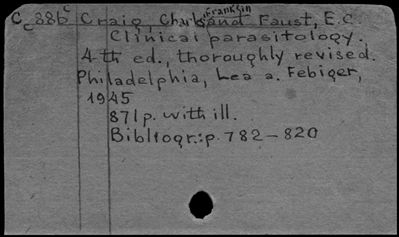 Cc88b c Craig, Charles Franklin and Faust, E.C.
Clinical parasitology.
4th ed., thoroughly revised.
Philadelphia, Lea a. Febiger,
1945
871p. with ill.
Bibliogr.: p. 782-820